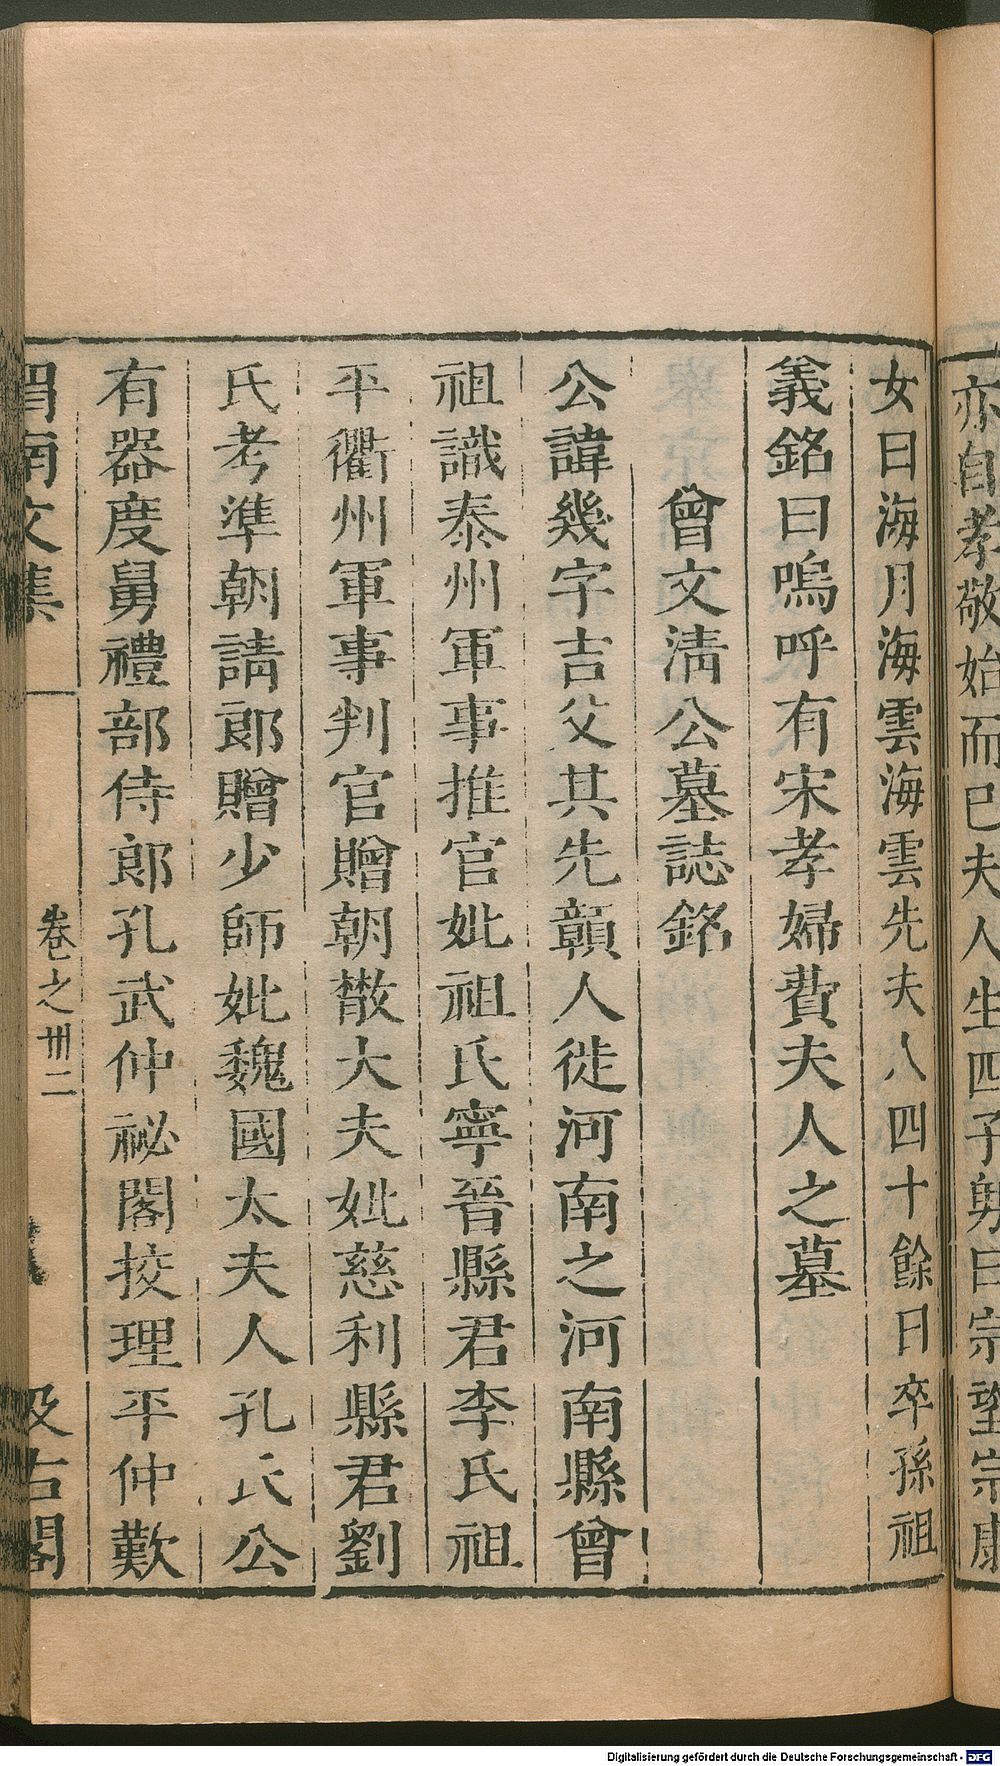 亦自孝敬始而已夫人生四子男曰宗望宗康
女曰海月海雲海雲先夫人四十餘日卒孫祖
義銘曰嗚呼有宋孝婦費夫人之墓
曾文淸公墓誌銘
公諱幾字吉父其先贑人徙河南之河南縣曾
祖識泰州軍事推官妣祖氏寧晉縣君李氏祖
平衢州軍事判官贈朝散大夫妣慈利縣君劉
氏考準朝請郎贈少師妣魏國太夫人孔氏公
有器度舅禮部侍郎孔武仲祕閣挍理平仲歎
渭南文集 卷之卅二 汲古閣
Digitalisierung gefördert durch die Deutsche Forschungsgemeinschaft - DFG